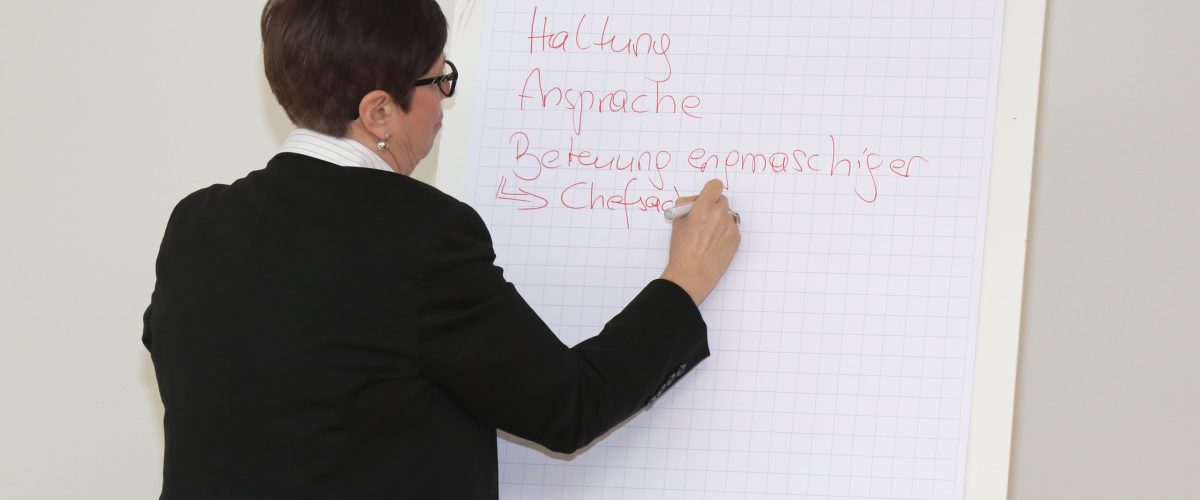 Haltung
Ansprache
Betreuung engmaschiger
Chefsach